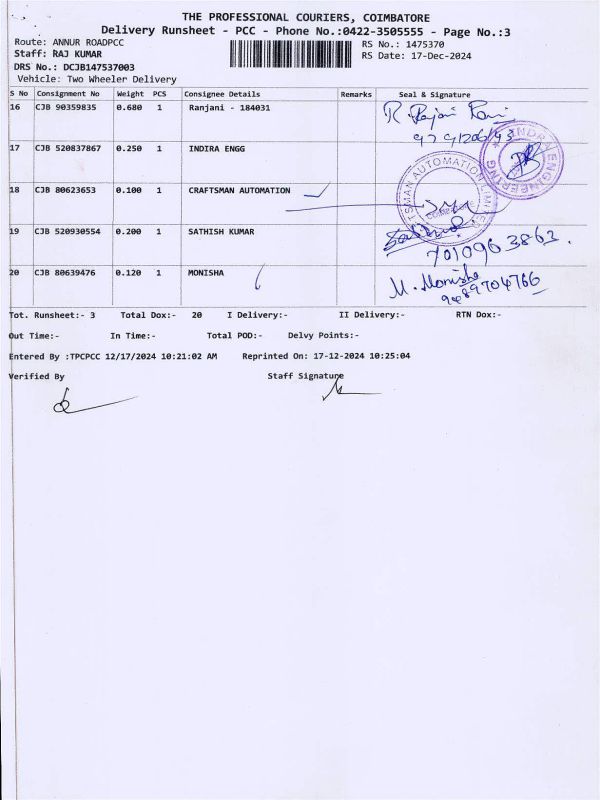 THE PROFESSIONAL COURIERS, COIMBATORE
Delivery Runsheet - PCC - Phone No.:0422-3505555 - Page No.:3
Route: ANNUR ROADPCC
RS No.: 1475370
Staff: RAJ KUMAR
RS Date: 17-Dec-2024
DRS No.: DCJB147537003
Vehicle: Two Wheeler Delivery
S No Consignment No Weight PCS Consignee Details Remarks Seal & Signature
16 CJB 90359835 0.680 1 Ranjani - 184031
17 CJB 520837867 0.250 1 INDIRA ENGG
18 CJB 80623653 0.100 1 CRAFTSMAN AUTOMATION
19 CJB 520930554 0.200 1 SATHISH KUMAR
7010963863.
20 CJB 80639476 0.120 1 MONISHA M. Monisha
Tot. Runsheet:- 3 Total Dox:- 20 I Delivery:- II Delivery:- RTN Dox:-
Out Time:- In Time:- Total POD:- Delvy Points:-
Entered By :TPCPCC 12/17/2024 10:21:02 AM Reprinted On: 17-12-2024 10:25:04
Verified By Staff Signature